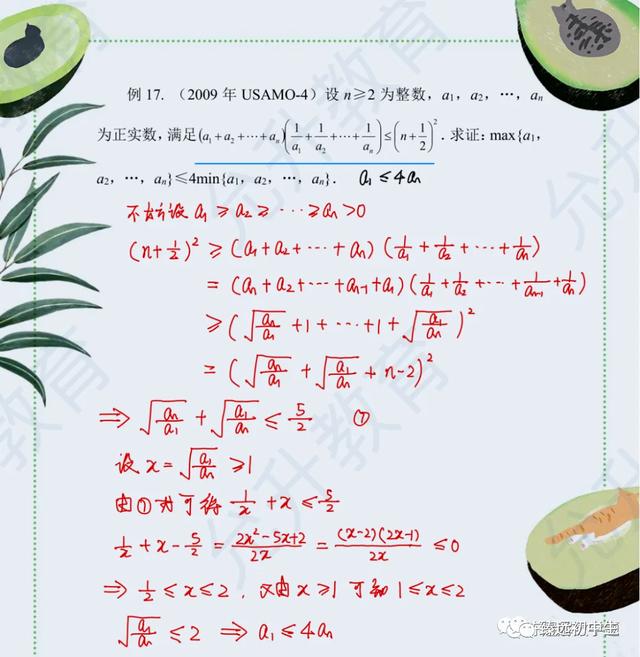 例 17. （2009 年 USAMO-4）设 n≥2 为整数，a₁，a₂，⋯，aₙ
为正实数，满足(a₁+a₂+⋯+aₙ)(1/a₁+1/a₂+⋯+1/aₙ)≤(n+1/2)². 求证：max{a₁，
a₂，⋯，aₙ}≤4min{a₁，a₂，⋯，aₙ}. a₁≤4aₙ
不妨设 a₁≥a₂≥⋯≥aₙ>0
(n+1/2)² ≥ (a₁+a₂+⋯+aₙ)(1/a₁+1/a₂+⋯+1/aₙ)
= (aₙ+a₂+⋯+aₙ₋₁+a₁)(1/a₁+1/a₂+⋯+1/aₙ₋₁+1/aₙ)
≥ (√(aₙ/a₁)+1+⋯+1+√(a₁/aₙ))²
= (√(aₙ/a₁)+√(a₁/aₙ)+n-2)²
⟹ √(aₙ/a₁)+√(a₁/aₙ) ≤ 5/2 ①
设 x=√(a₁/aₙ) ≥1
由①式可得 1/x+x≤5/2
1/x+x-5/2 = (2x²-5x+2)/2x = (x-2)(2x-1)/2x ≤0
⟹ 1/2≤x≤2. 又由 x≥1 可知 1≤x≤2
√(a₁/aₙ) ≤2 ⟹ a₁≤4aₙ
臻远初中生
允升教育